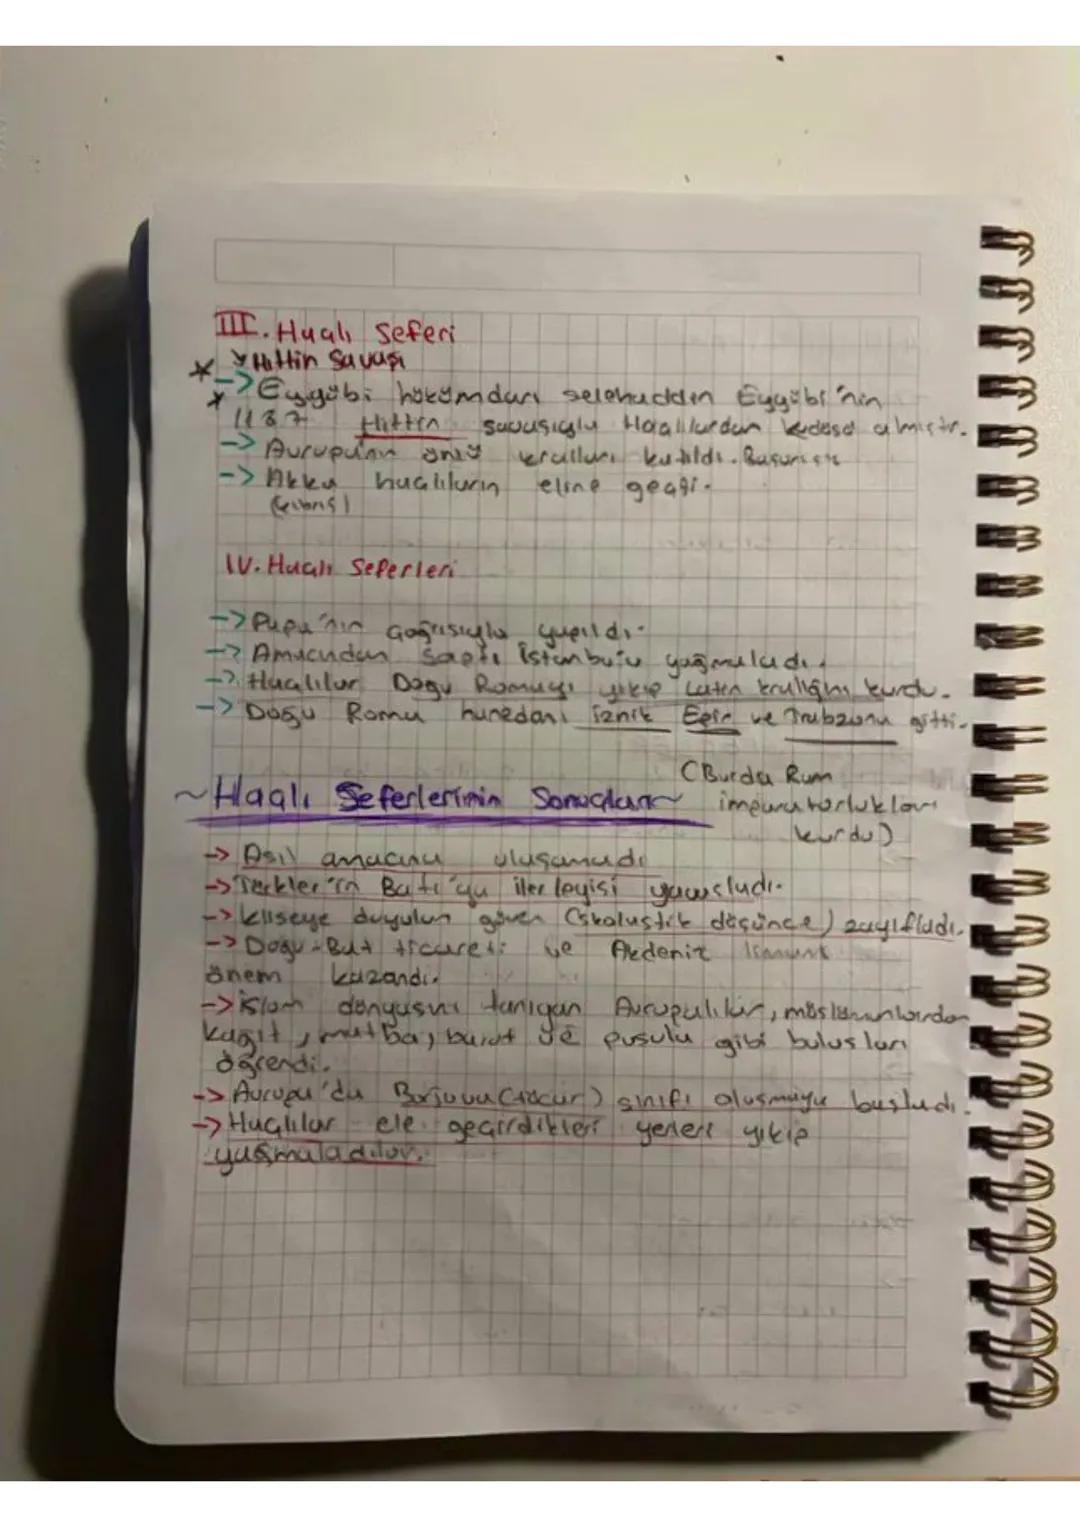 III. Haçlı Seferi
Hıttin Savaşı
-> Eyyübi hükümdarı selahaddin Eyyübi'nin
1187 Hıttin savaşıyla Haçlılardan kudüsü almıştır.
-> Avrupa'nın ünlü kralları katıldı. Başarısız
-> Akka haçlıların eline geçti.
(Kıbrıs)
IV. Haçlı Seferleri
-> Papa'nın çağrısıyla yapıldı.
-> Amacından saptı İstanbul'u yağmaladı.
-> Haçlılar Doğu Romayı yıkıp Latin krallığını kurdu.
-> Doğu Roma hanedanı iznik Epir ve Trabzona gitti.
(Burda Rum
~Haçlı Seferlerinin Sonuçları~ imparatorlukları
kurdu)
-> Asıl amacına ulaşamadı
-> Türkler'in Batı'ya ilerleyişi yavaşladı.
-> kliseye duyulan güven (skolastik düşünce) zayıfladı.
-> Doğu-Batı ticareti ve Akdeniz limanı
önem kazandı.
-> islam dünyasını tanıyan Avrupalılar, müslümanlardan
kağıt, matba, barut ve pusula gibi bulusları
öğrendi.
-> Avrupa'da Burjuva (tüccar) sınıfı oluşmaya başladı.
-> Haçlılar ele geçirdikleri yerleri yıkıp
yağmaladılar.